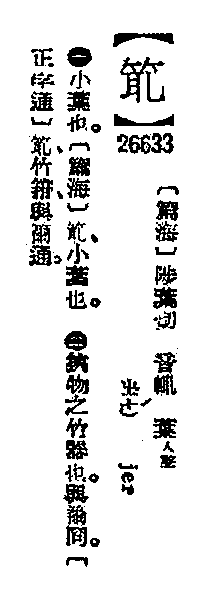 【】
26633
〔篇海〕陟葉切 音輒 葉入聲
ㄓㄜˊ jer
㊀小葉也。〔篇海〕、小葉也。㊁執物之竹器也。與籋同。〔
正字通〕、竹箝、與籋通。